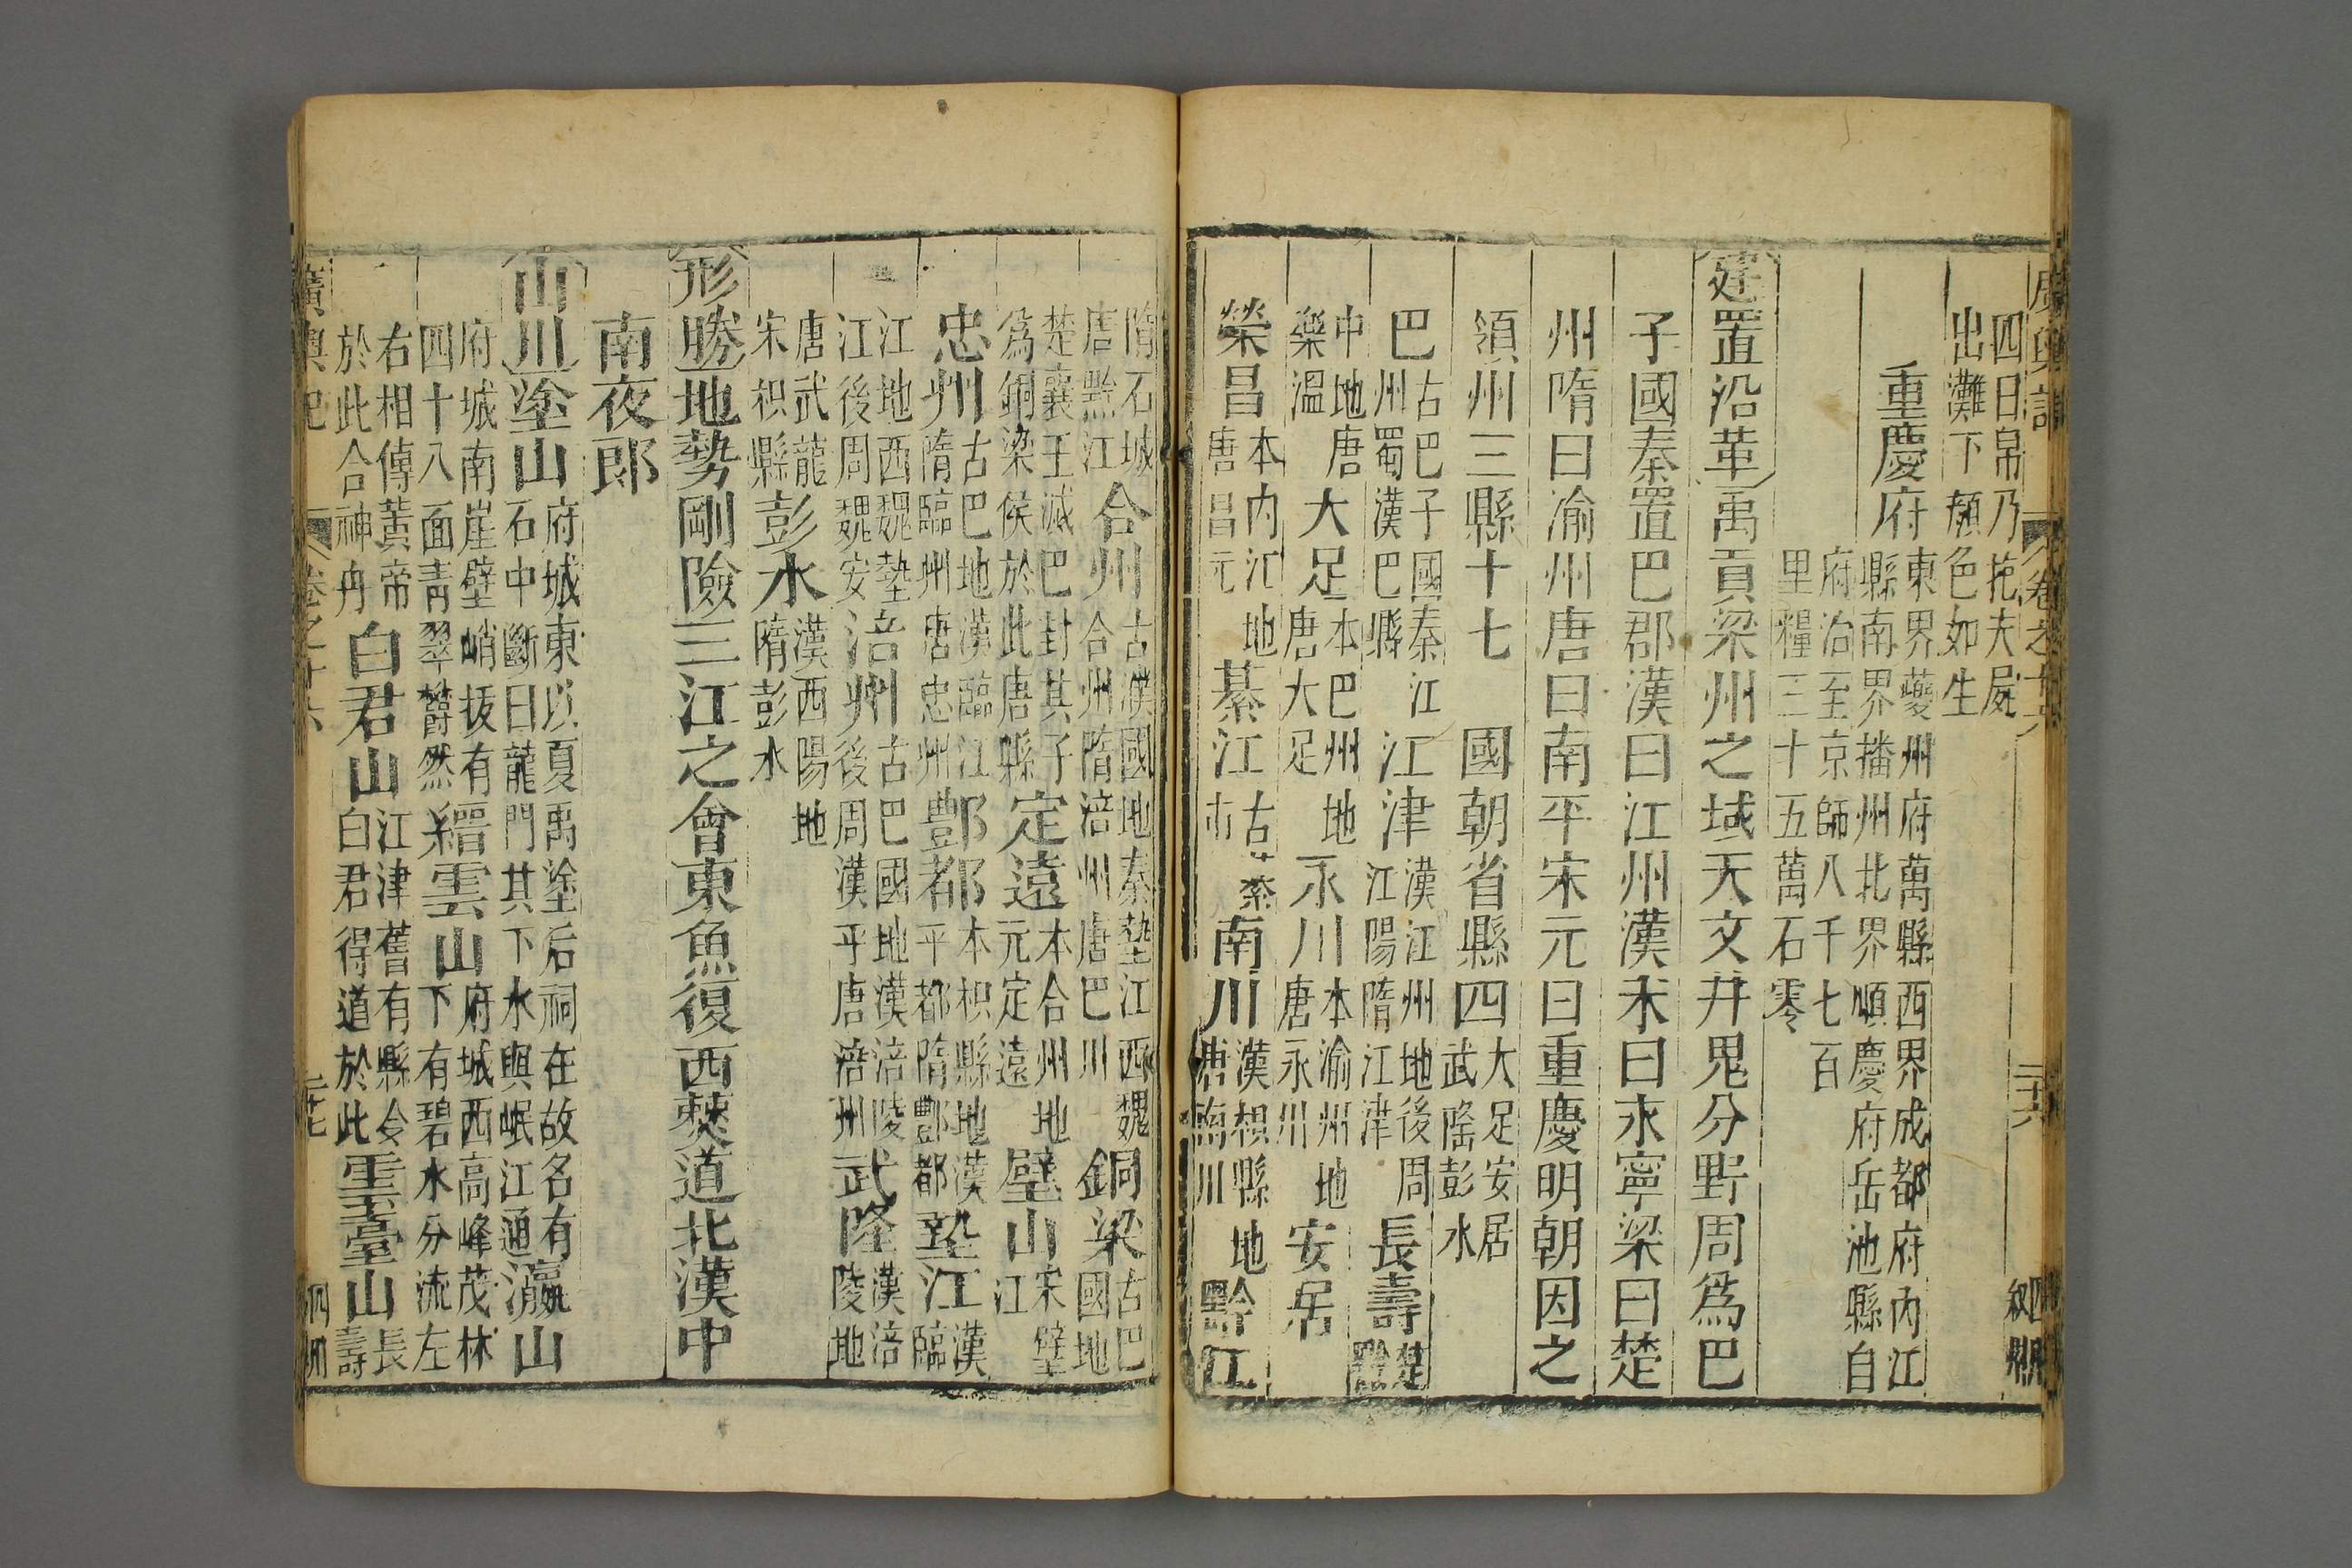 廣輿記 卷之十六 二十六 四川 敘州
四日帛乃抱夫屍
出灘下顏色如生
重慶府
東界夔州府萬縣西界成都府內江
縣南界播州北界順慶府岳池縣自
府治至京師八千七百
里糧三十五萬石零
建置沿革禹貢梁州之域天文井鬼分野周爲巴
子國秦置巴郡漢曰江州漢末曰永寧梁曰楚
州隋曰渝州唐曰南平宋元曰重慶明朝因之
領州三縣十七 國朝省縣四大足安居
武隆彭水
巴古巴子國秦江
州蜀漢巴縣
江津漢江州地後周
江陽隋江津
長壽楚
黔
中地唐
樂溫
大足本巴州地
唐大足
永川本渝州地
唐永川
安居
榮昌本內江地
唐昌元
綦江古
南川漢枳縣地
唐南川
黔江
隋石城
唐黔江
合州古濮國地秦墊江西魏
合州隋涪州唐巴川
銅梁古巴
國地
楚襄王滅巴封其子
爲銅梁侯於此唐縣
定遠本合州地
元定遠
璧山宋璧
江
忠州古巴地漢臨江
隋臨州唐忠州
酆都本枳縣地漢
平都隋酆都
墊江漢
臨
江地西魏墊
江後周魏安
涪州古巴國地漢涪陵
後周漢平唐涪州
武隆漢涪
陵地
唐武龍
宋枳縣
彭水漢西陽地
隋彭水
形勝地勢剛險三江之會東魚復西僰道北漢中
南夜郎
山川塗山府城東以夏禹塗后祠在故名有
石中斷曰龍門其下水與岷江通
瀛山
府城南崖壁峭拔有
四十八面青翠欝然
縉雲山府城西高峰茂林
下有碧水分流左
右相傳黃帝
於此合神丹
白君山江津舊有縣令
白君得道於此
重臺山長
壽
廣輿記 卷之十六 二十七 四川